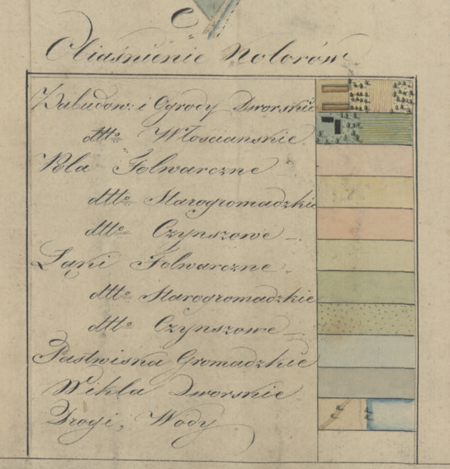 Obiaśnienie Kolorów
Zabudow: i Ogrody Dworskie
dtto Włościanskie.
Pola Folwarczne
dtto Starogromadzkie
dtto Czynszowe
Łąki Folwarczne
dtto Starogromadzkie
dtto Czynszowe
Pastwiska Gromadzkie
Wikla Dworskie
Drogi, Wody